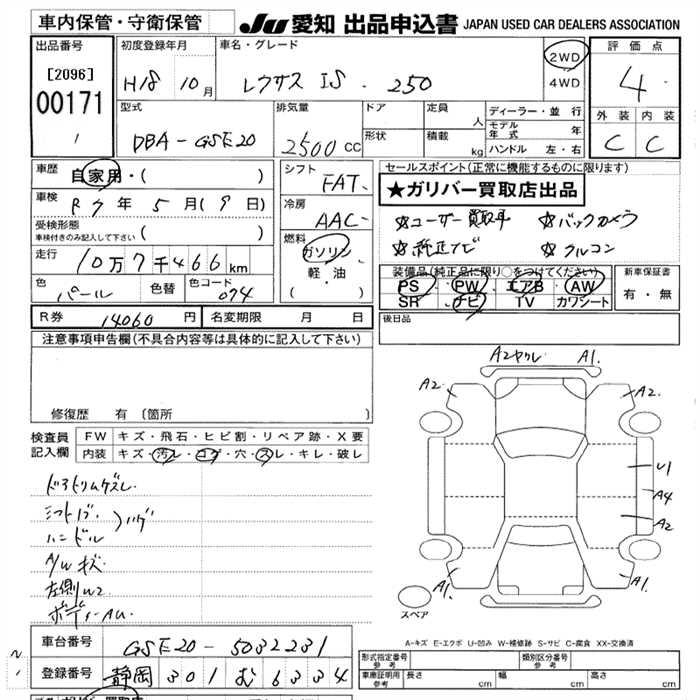 車内保管・守衛保管
JU 愛知 出品申込書 JAPAN USED CAR DEALERS ASSOCIATION
出品番号
[2096]
00171
初度登録年月
H18 10月
車名・グレード
レクサス IS. 250
2WD
4WD
評価点
4
外装 内装
C C
型式
DBA-GSE20
排気量
2500 CC
ドア
形状
定員 人
積載 kg
ディーラー・並行
モデル年式 年
ハンドル 左・右
車歴
自家用・( )
車検
R7年5月(9日)
受検形態
車検付きのみ記入して下さい ( )
走行
10万7千466km
色
パール
色替
色コード
074
シフト
FAT
冷房
AAC
燃料
ガソリン
軽・油
( )
セールスポイント(正常に機能するものに限ります)
★ガリバー買取店出品
☆ユーザー買取車 ☆バックカメラ
☆純正ナビ ☆クルコン
装備品(純正品に限り○をつけてください)
PS・PW・エアB・AW
SR ナビ TV カワシート
新車保証書
有・無
R券 14060円
名変期限 月 日
後日品
注意事項申告欄(不具合内容等は具体的に記入して下さい)
修復歴 有 〔箇所 〕
検査員
記入欄
FW キズ・飛石・ヒビ割・リペア跡・X要
内装 キズ・汚レ・コゲ・穴・スレ・キレ・破レ
ドアトリムケズレ
シフトノブ
ハンドル
)ハゲ
A/Wキズ
左側W2
ボディーAU
A2ヤクレ A1.
A2. A2.
U1
A4
A2
A1. A1.
スペア
A-キズ E-エクボ U-凹み W-補修跡 S-サビ C-腐食 XX-交換済
車台番号
GSE20-5032231
登録番号
静岡 301 む 6334
形式指定番号
参考
類別区分番号
参考
車庫証明用
参考
長さ cm 幅 cm 高さ cm